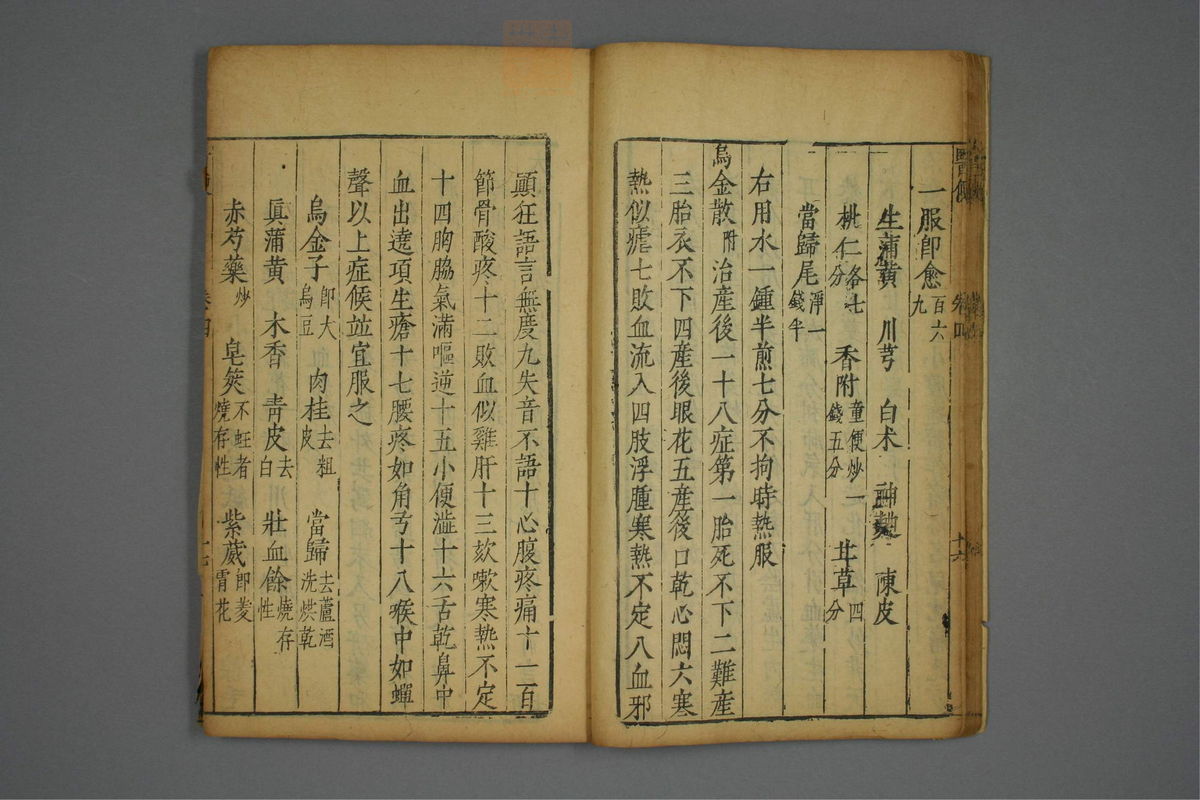 一服即愈百六九
生蒲黄 川芎 白术 神麯 陳皮
桃仁各七分 香附童便炒一錢五分 甘草四分
當歸尾淨一錢半
右用水一鍾半煎七分不拘時熱服
烏金散附治産後一十八症第一胎死不下二難産
三胎衣不下四産後眼花五産後口乾心悶六寒
熱似瘧七敗血流入四肢浮腫寒熱不定八血邪
顚狂語言無度九失音不語十心腹疼痛十一百
節骨酸疼十二敗血似雞肝十三欬嗽寒熱不定
十四胸脇氣滿嘔逆十五小便澁十六舌乾鼻中
血出遶項生瘡十七腰疼如角弓十八喉中如蟬
聲以上症候並宜服之
烏金子即大烏豆 肉桂去粗皮 當歸去蘆酒洗烘乾
眞蒲黄 木香 青皮去白 壯血餘燒存性
赤芍藥炒 皂筴不蛀者燒存性 紫葳即菱霄花